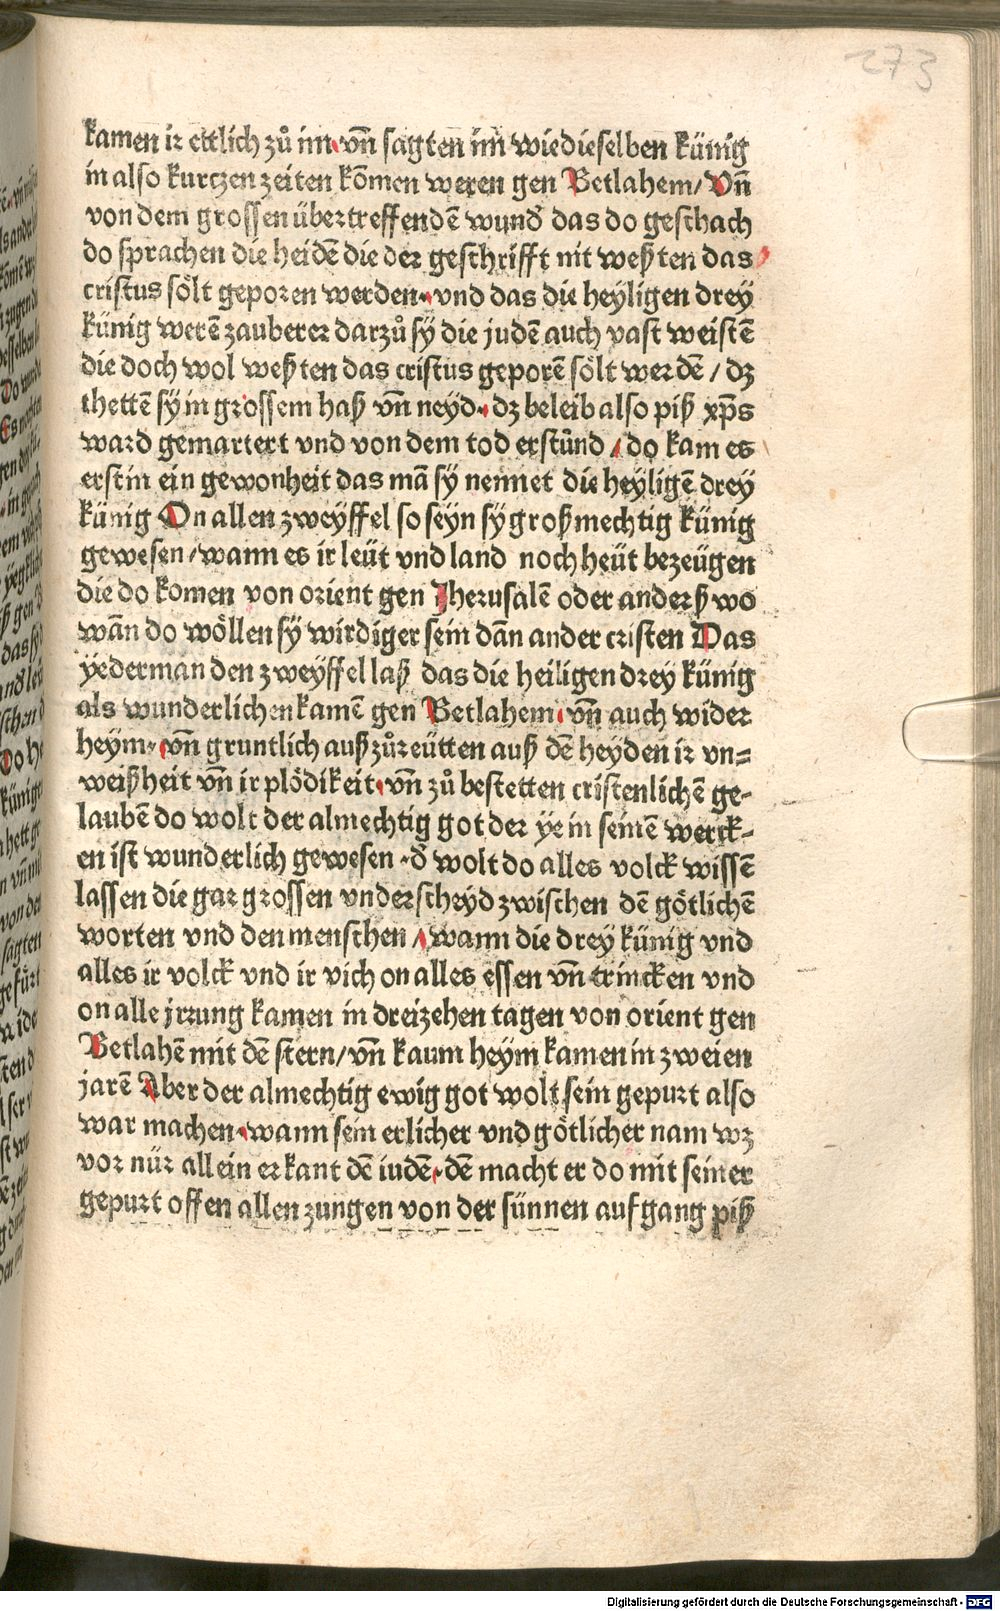 273
kamen ir ettlich zů im. vn̄ sagten im̄ wiedieselben künig
in also kurtzen zeiten kōmen weren gen Betlahem/ Vn̄
von dem grossen übertreffendē wund̄ das do geschach
do sprachen die heidē die der geschrifft nit weßten das
cristus sölt geporen werden. vnd das die heyligen drey
künig werē zauberer darzů sÿ die judē auch vast weistē
die doch wol weßten das cristus geporē sölt werdē / dz
thettē sÿ in grossem haß vn̄ neyd. dz beleib also piß xp̄s
ward gemartert vnd von dem tod erstūnd / do kam es
erst in ein gewonheit das mā sÿ nennet die heyligē drey
künig On allen zweyffel so seyn sÿ großmechtig künig
gewesen / wann es ir leüt vnd land noch heüt bezeügen
die do komen von orient gen Jherusalē oder anderß wo
wān do wöllen sÿ wirdiger sein dān ander cristen Das
yederman den zweyffel laß das die heiligen drey künig
als wunderlichen kamē gen Betlahem. vn̄ auch wider
heym. vn̄ gruntlich außzůreütten auß dē heyden ir vn=
weißheit vn̄ ir plödikeit. vn̄ zů bestetten cristenlichē ge-
laubē do wolt der almechtig got der ye in seinē werck-
en ist wunderlich gewesen . d̄ wolt do alles volck wissē
lassen die gar grossen vnderscheyd zwischen dē götlichē
worten vnd den menschen / wann die drey künig vnd
alles ir volck vnd ir vich on alles essen vn̄ trincken vnd
on alle jrrung kamen in dreizehen tagen von orient gen
Betlahē mit dē stern/ vn̄ kaum heym kamen in zweien
jarē Aber der almechtig ewig got wolt sein gepurt also
war machen. wann sein erlicher vnd götlicher nam wz
vor nür allein erkant dē iudē. dē macht er do mit seiner
gepurt offen allen zungen von der sünnen aufgang piß
Digitalisierung gefördert durch die Deutsche Forschungsgemeinschaft - DFG